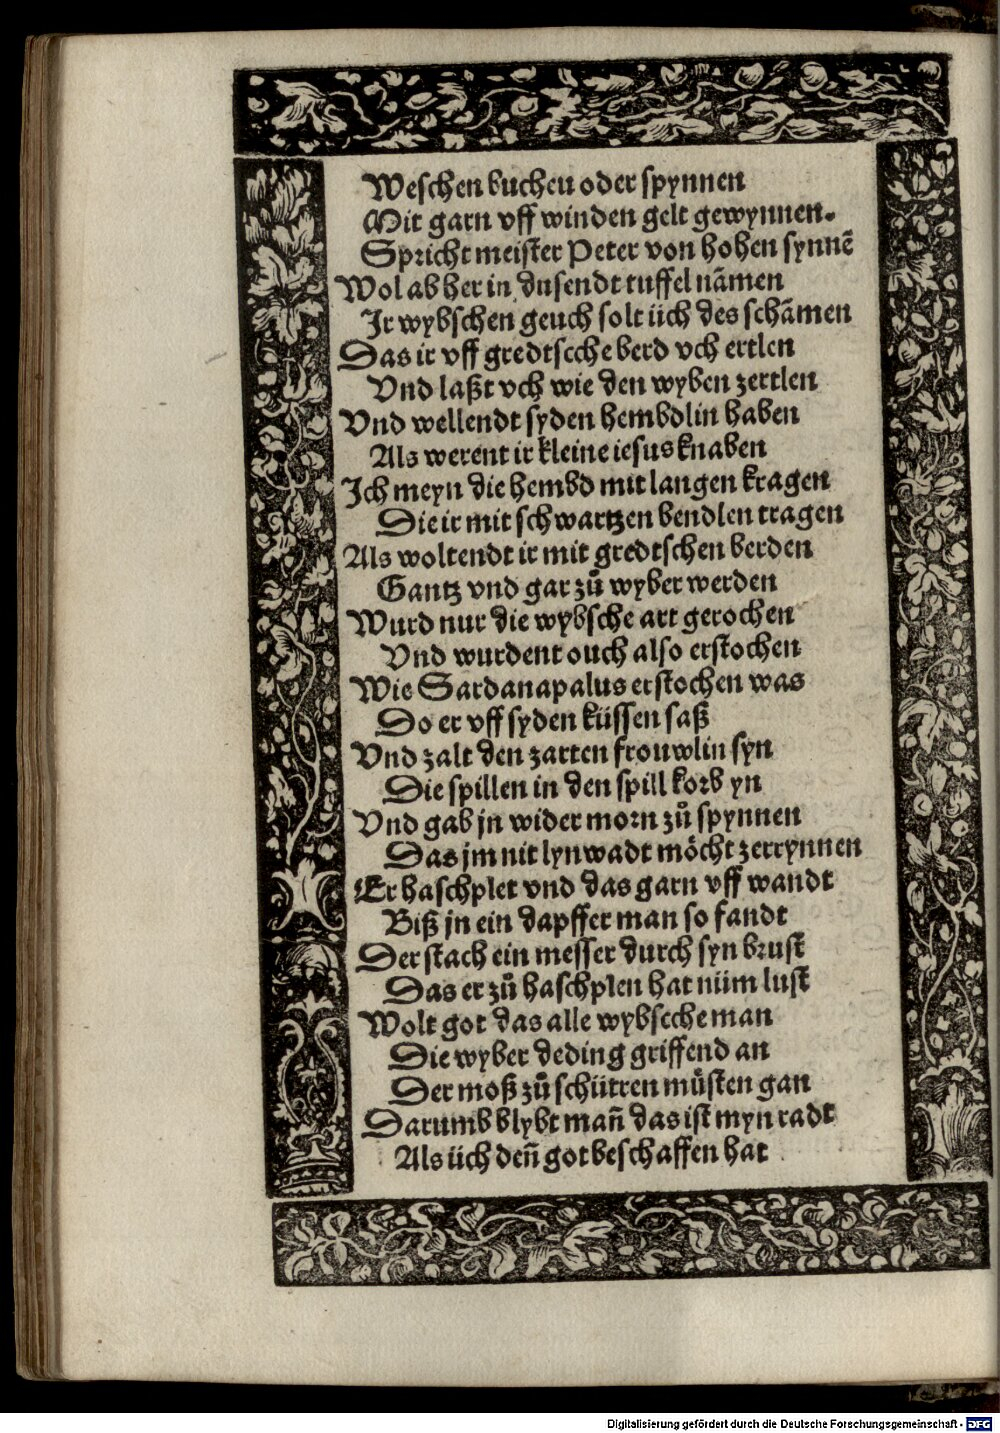 Weschen bucheu oder spynnen
Mit garn vff winden gelt gewynnen.
Spricht meister Peter von hohen synnē
Wol ab her in dusendt tuffel nãmen
Ir wybschen geuch solt üch des schãmen
Das ir vff gredtscche berd vch ertlen
Vnd laßt vch wie den wyben zertlen
Vnd wellendt syden hembdlin haben
Als werent ir kleine iesus knaben
Ich meyn die hembd mit langen kragen
Die ir mit schwartzen bendlen tragen
Als woltendt ir mit gredtschen berden
Gantz vnd gar zů wyber werden
Wurd nur die wybsche art gerochen
Vnd wurdent ouch also erstochen
Wie Sardanapalus erstochen was
Do er vff syden küssen saß
Vnd zalt den zarten frouwlin syn
Die spillen in den spill korb yn
Vnd gab jn wider morn zů spynnen
Das jm nit lynwadt möcht zerrynnen
Er haschplet vnd das garn vff wandt
Biß jn ein dapffer man so fandt
Der stach ein messer durch syn brust
Das er zů haschplen hat nüm lust
Wolt got das alle wybscche man
Die wyber deding griffend an
Der moß zů schiitren müsten gan
Darumb blybt mañ das ist myn radt
Als üch deñ got beschaffen hat
Digitalisierung gefördert durch die Deutsche Forschungsgemeinschaft - DFG